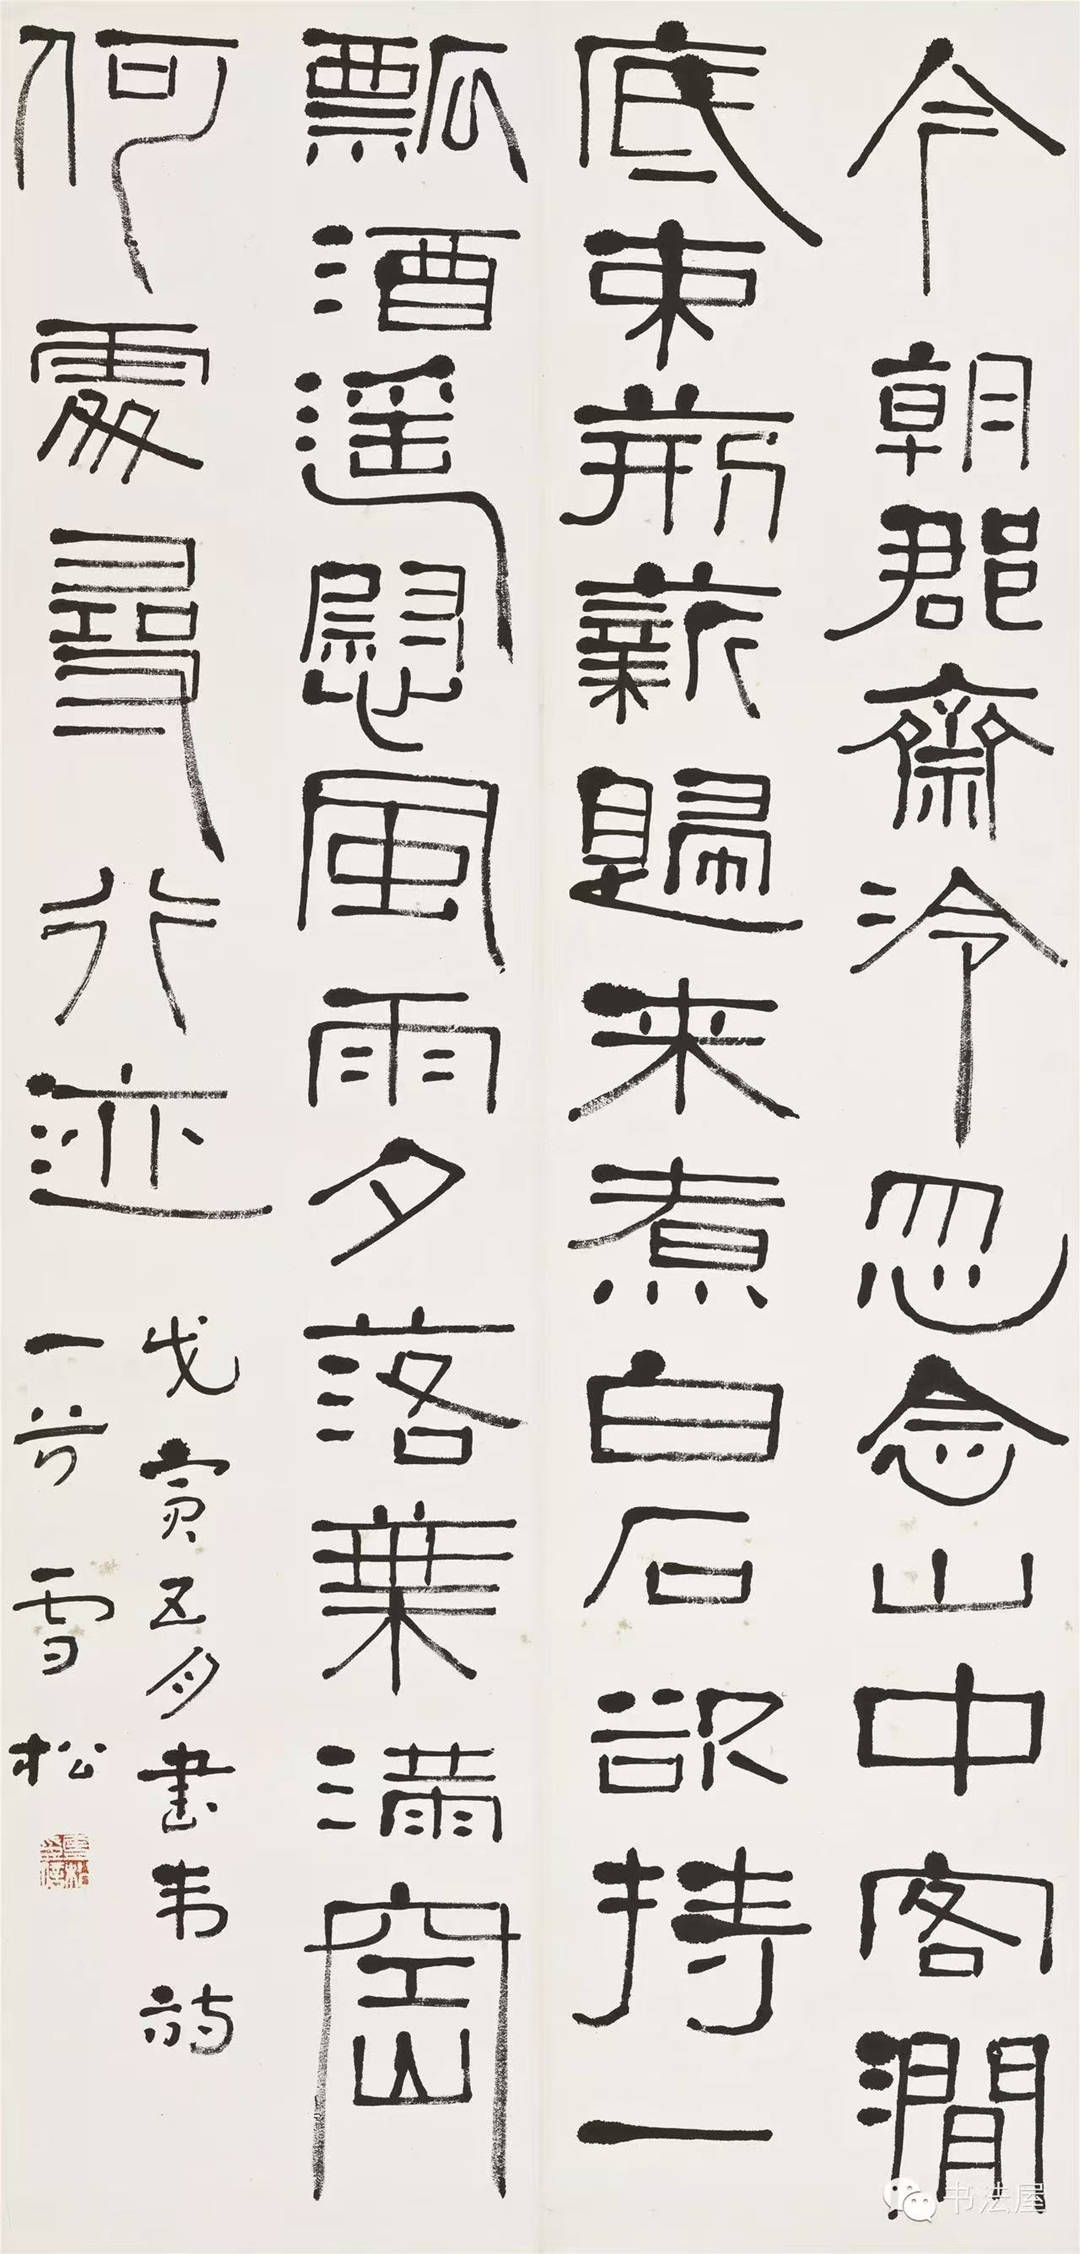 今朝郡齋冷忽念山中客澗
底束荆薪歸来煮白石欲持一
瓢酒遥慰風雨夕落葉滿空山
何處尋行迹
戊寅五月書韋詩
一首雪松
书法屋